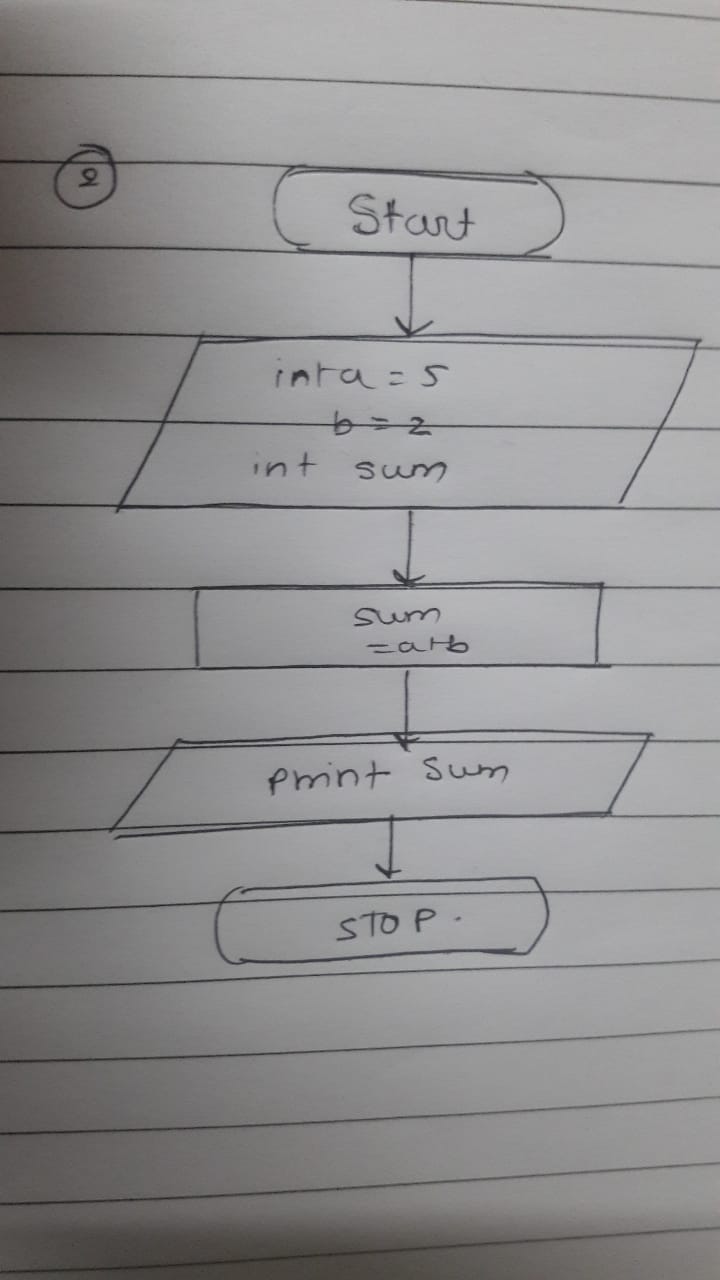 2
Start
int a = 5
b = 2
int sum
sum
= a+b
print sum
STOP.